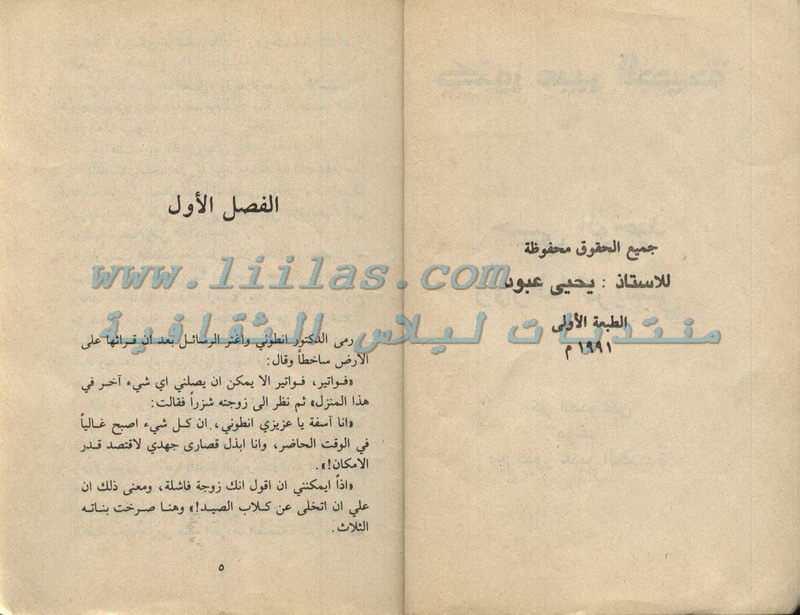 جميع الحقوق محفوظة
للاستاذ : يحيى عبود
الطبعة الأولى
١٩٩١ م
www.liilas.com
منتديات ليلاس الثقافية
الفصل الأول
رمى الدكتور انطوني واغنر الرسائل بعد ان قرائها على
الأرض ساخطاً وقال:
«فواتير، فواتير الا يمكن ان يصلني اي شيء آخر في
هذا المنزل» ثم نظر الى زوجته شزراً فقالت:
«انا آسفة يا عزيزي انطوني، ان كل شيء اصبح غالياً
في الوقت الحاضر، وانا ابذل قصارى جهدي لاقتصد قدر
الامكان!».
«اذاً ايمكنني ان اقول انك زوجة فاشلة، ومعنى ذلك ان
علي ان اتخلى عن كلاب الصيد!» وهنا صرخت بناته
الثلاث.
٥